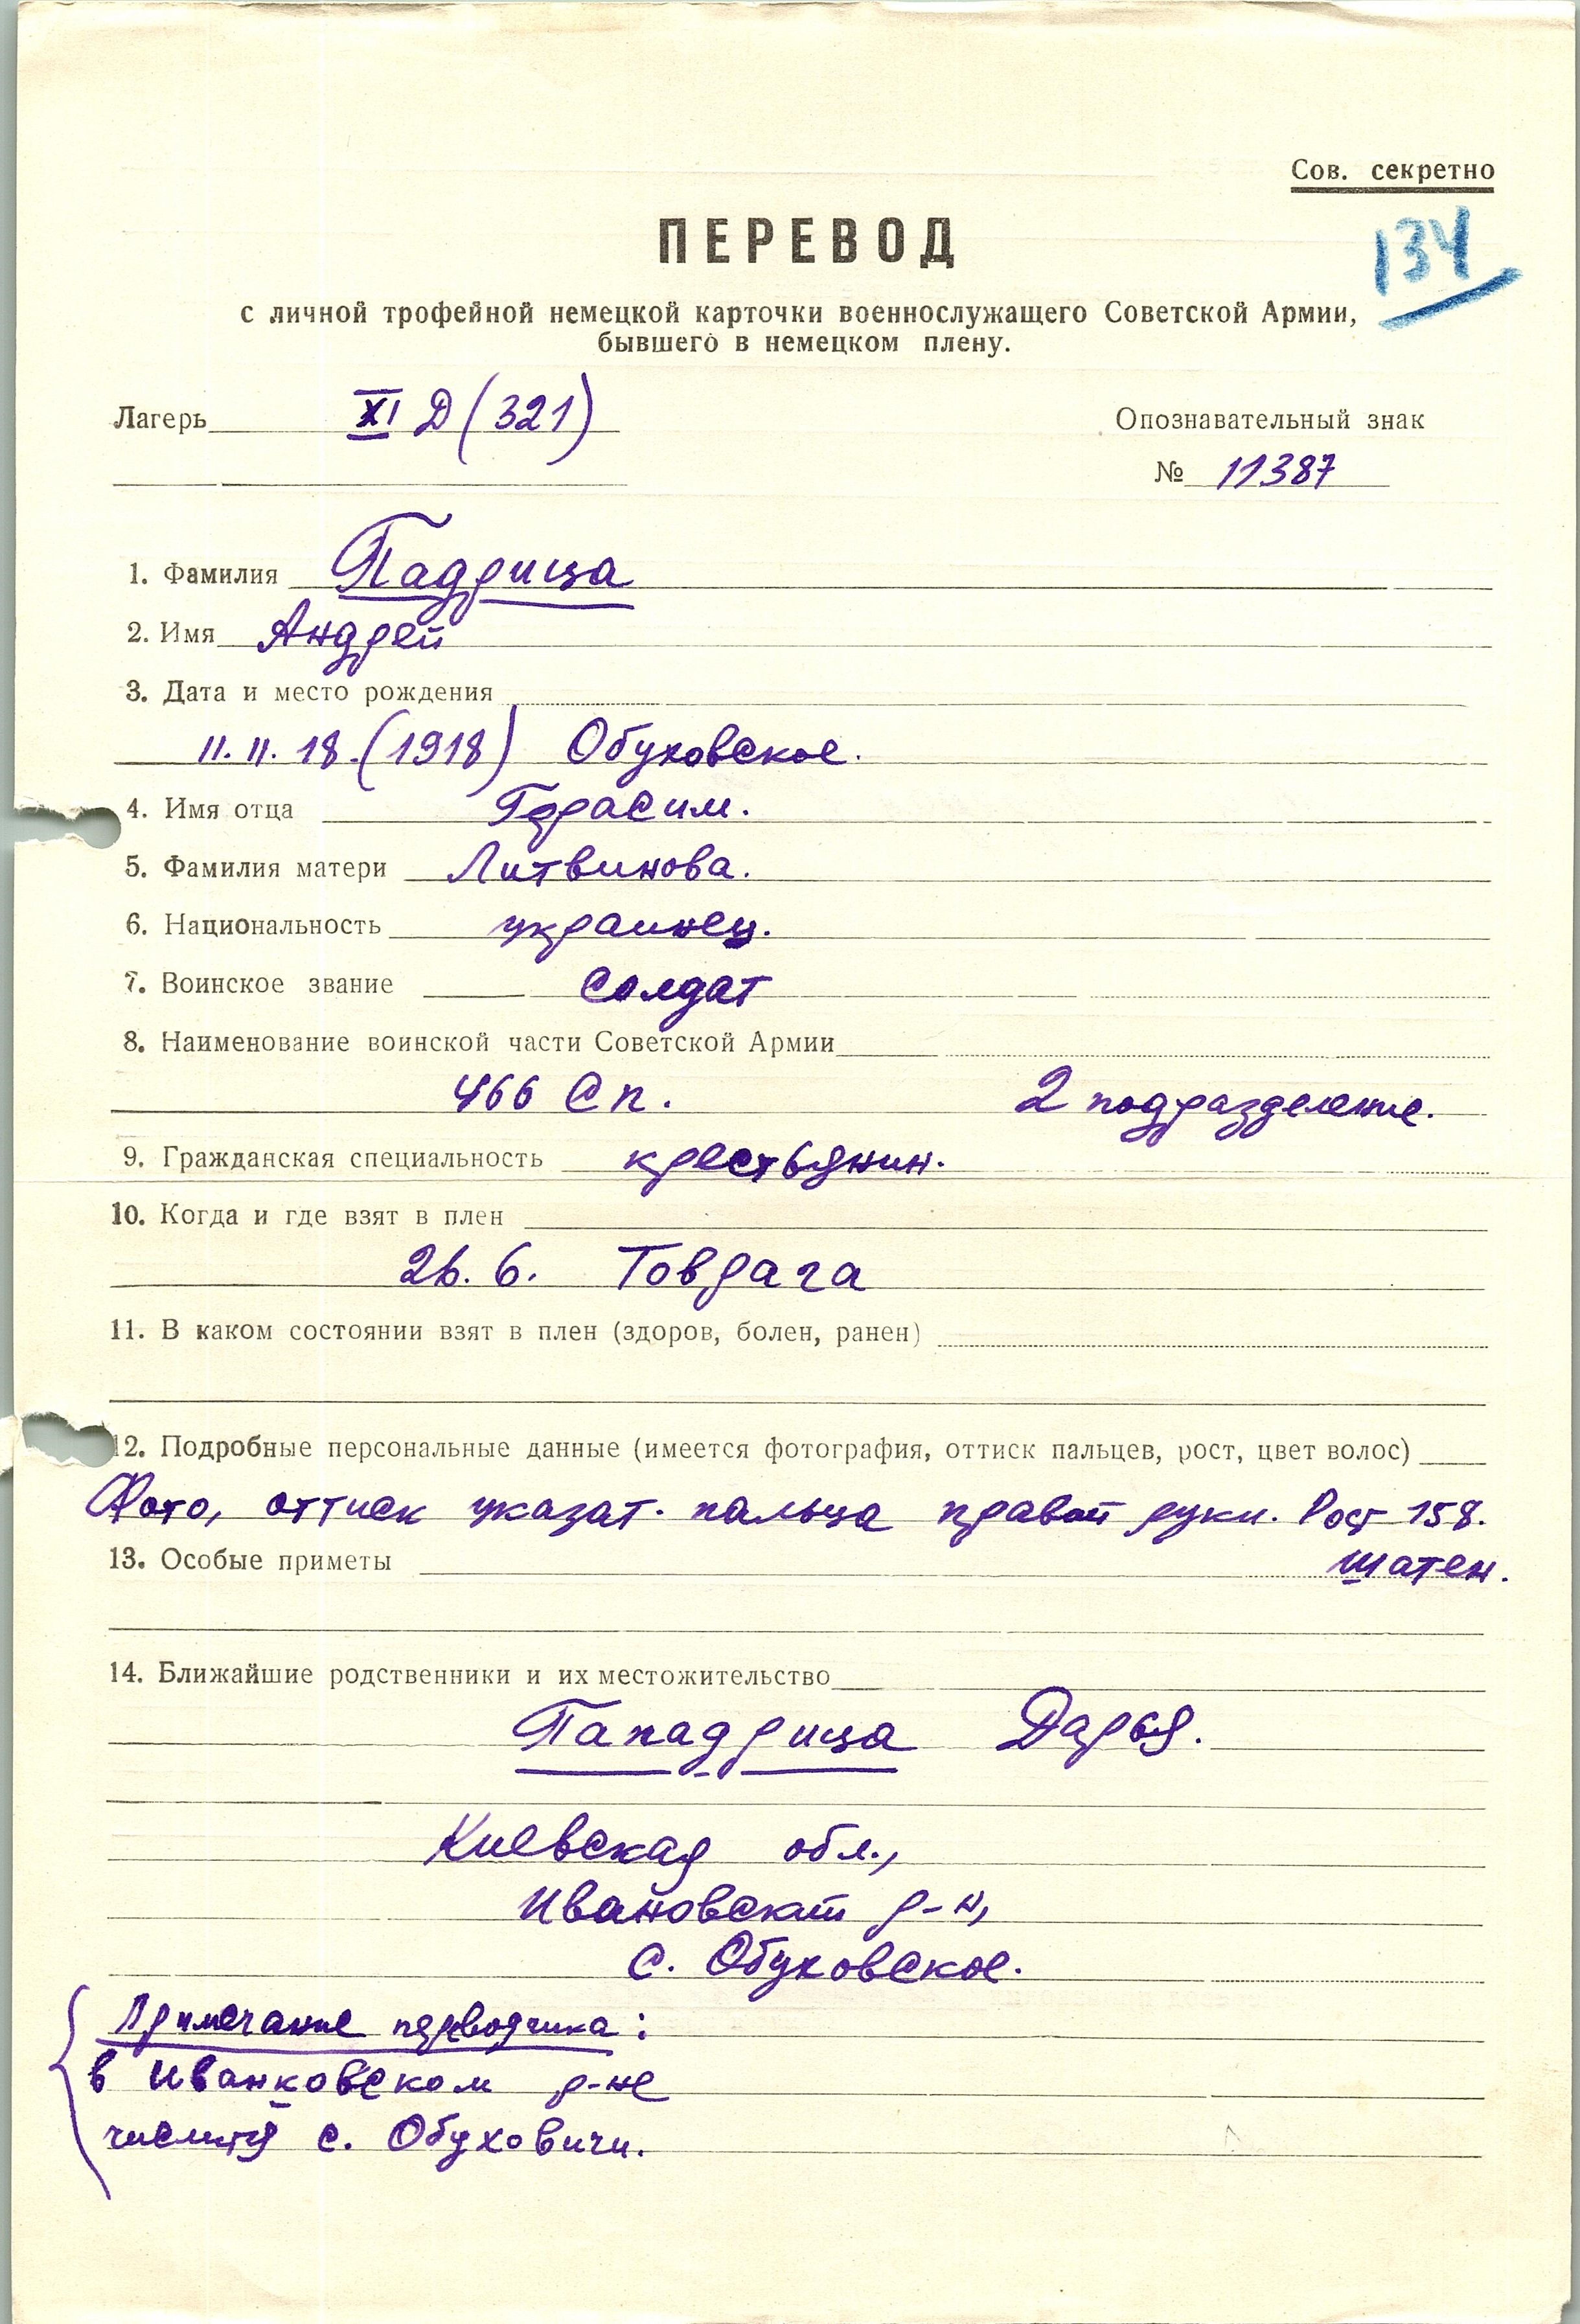 Сов. секретно
134
ПЕРЕВОД
с личной трофейной немецкой карточки военнослужащего Советской Армии,
бывшего в немецком плену.
Лагерь XI Д (321)
Опознавательный знак
№ 11387
1. Фамилия Падрица
2. Имя Андрей
3. Дата и место рождения
11. 11. 18. (1918) Обуховское.
4. Имя отца Герасим.
5. Фамилия матери Литвинова.
6. Национальность украинец.
7. Воинское звание Солдат
8. Наименование воинской части Советской Армии
466 Сп. 2 подразделение.
9. Гражданская специальность крестьянин.
10. Когда и где взят в плен
26. 6.
11. В каком состоянии взят в плен (здоров, болен, ранен)
12. Подробные персональные данные (имеется фотография, оттиск пальцев, рост, цвет волос)
Фото, оттиск указат. пальца правой руки. Рост 158.
шатен.
13. Особые приметы
14. Ближайшие родственники и их местожительство
Пападрица Дарья.
Киевская обл.,
Ивановский р-н,
с. Обуховское.
Примечание переводчика:
в Иванковском р-не
числится с. Обуховичи.